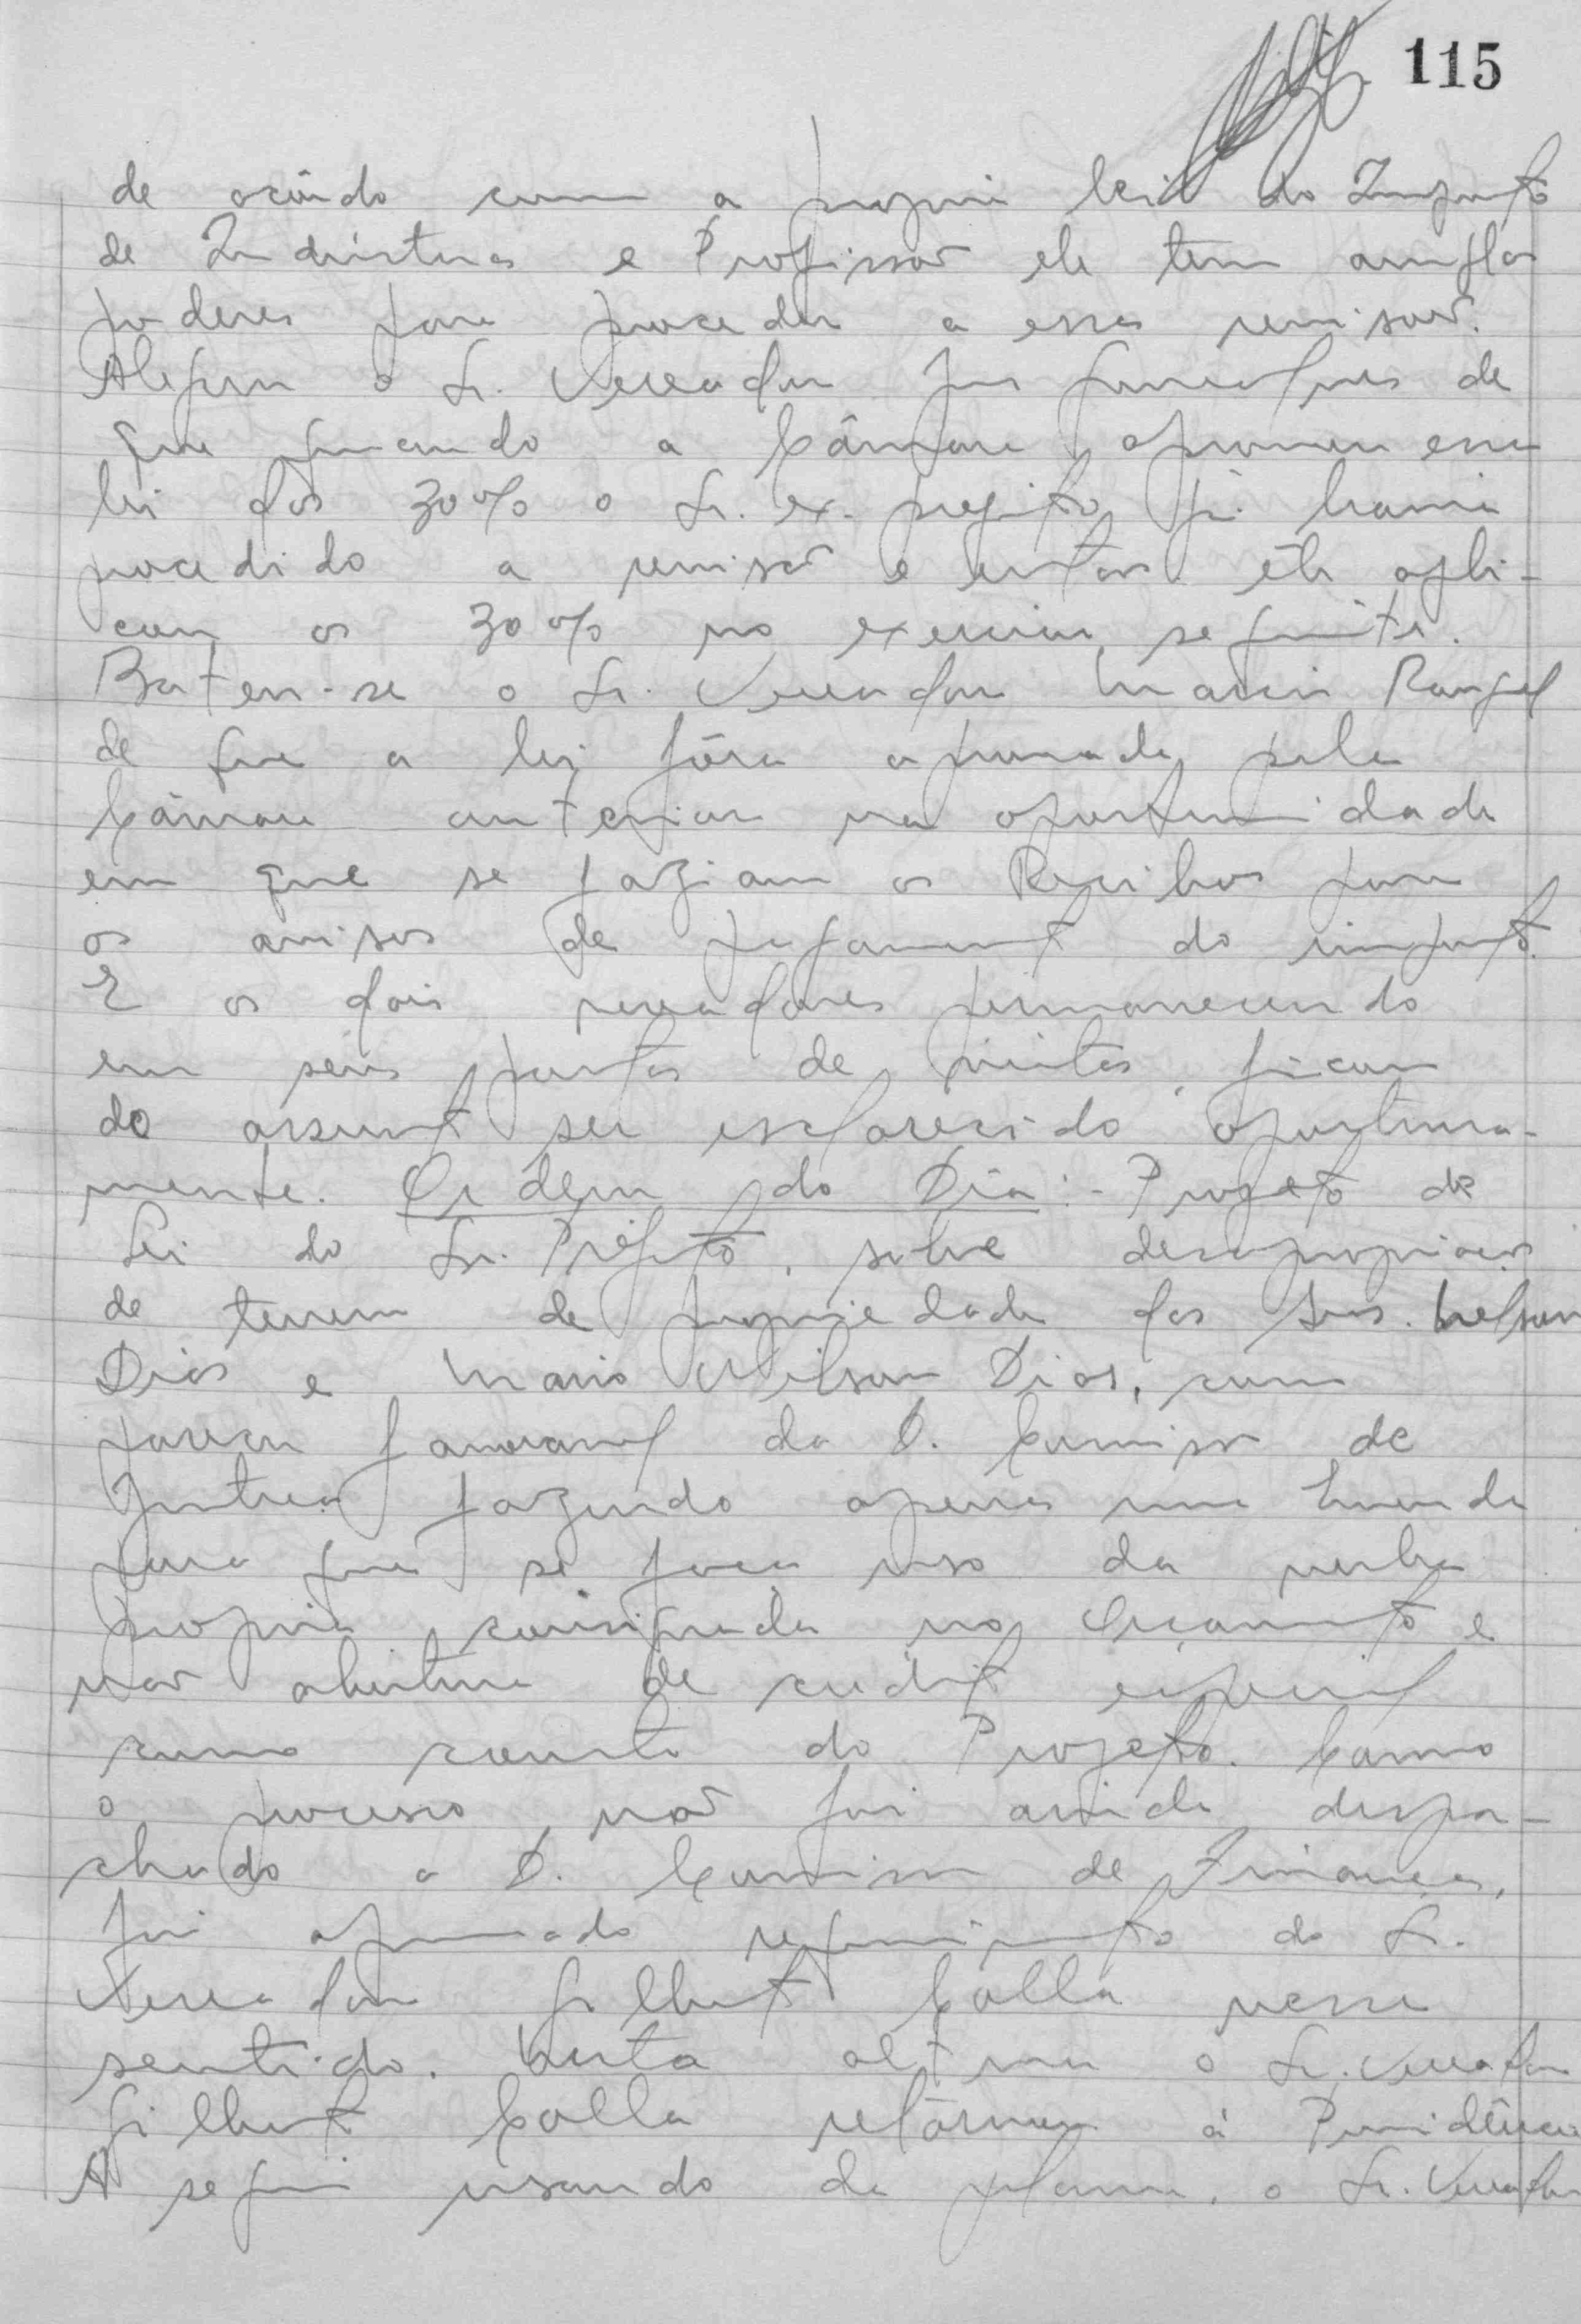 115
de acôrdo com a propria lei do Imposto
de Industrias e Profissão ele tem amplos
poderes para proceder a essa revisão.
Alegou o Sr. Vereador
que quando a Câmara aprovou essa
lei dos 30% o Sr. ex-prefeito já havia
procedido a revisão e então êle apli-
cou os 30% no exercicio seguinte.
Bateu-se o Sr. Vereador Marcio Rangel
de que a lei fôra aprovada pela
Câmara anterior na oportunidade
em que se faziam os Recibos para
os avisos de pagamento do imposto.
E os dois vereadores permanecendo
em seus pontos de vistas, fican
do assunto ser esclarecido oportuna-
mente. Ordem do Dia:- Projeto de
Lei do Sr. Prefeito, sobre desapropriação
de terreno de propriedade dos Srs. Nelson
Dias e Mario Wilson Dias, com
parecer favoravel da D. Comissão de
Justiça fazendo apenas uma Emenda
para que se faça uso da verba
propria consignada no Orçamento e
não abertura de credito especial
como consta do Projeto. Como
o processo não foi ainda despa-
chado a D. Comissão de Finanças,
foi aprovado requerimento do Sr.
Vereador Gilbert Colla nesse
sentido. Nesta altura o Sr. Vereador
Gilbert Colla retornou à Presidência
A seguir usando da palavra, o Sr. Vereador